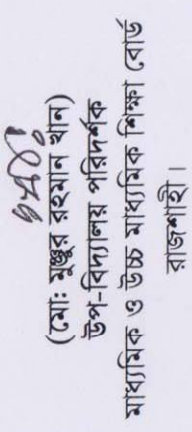 (মোঃ মুঞ্জুর রহমান খান)
উপ-বিদ্যালয় পরিদর্শক
মাধ্যমিক ও উচ্চ মাধ্যমিক শিক্ষা বোর্ড
রাজশাহী।